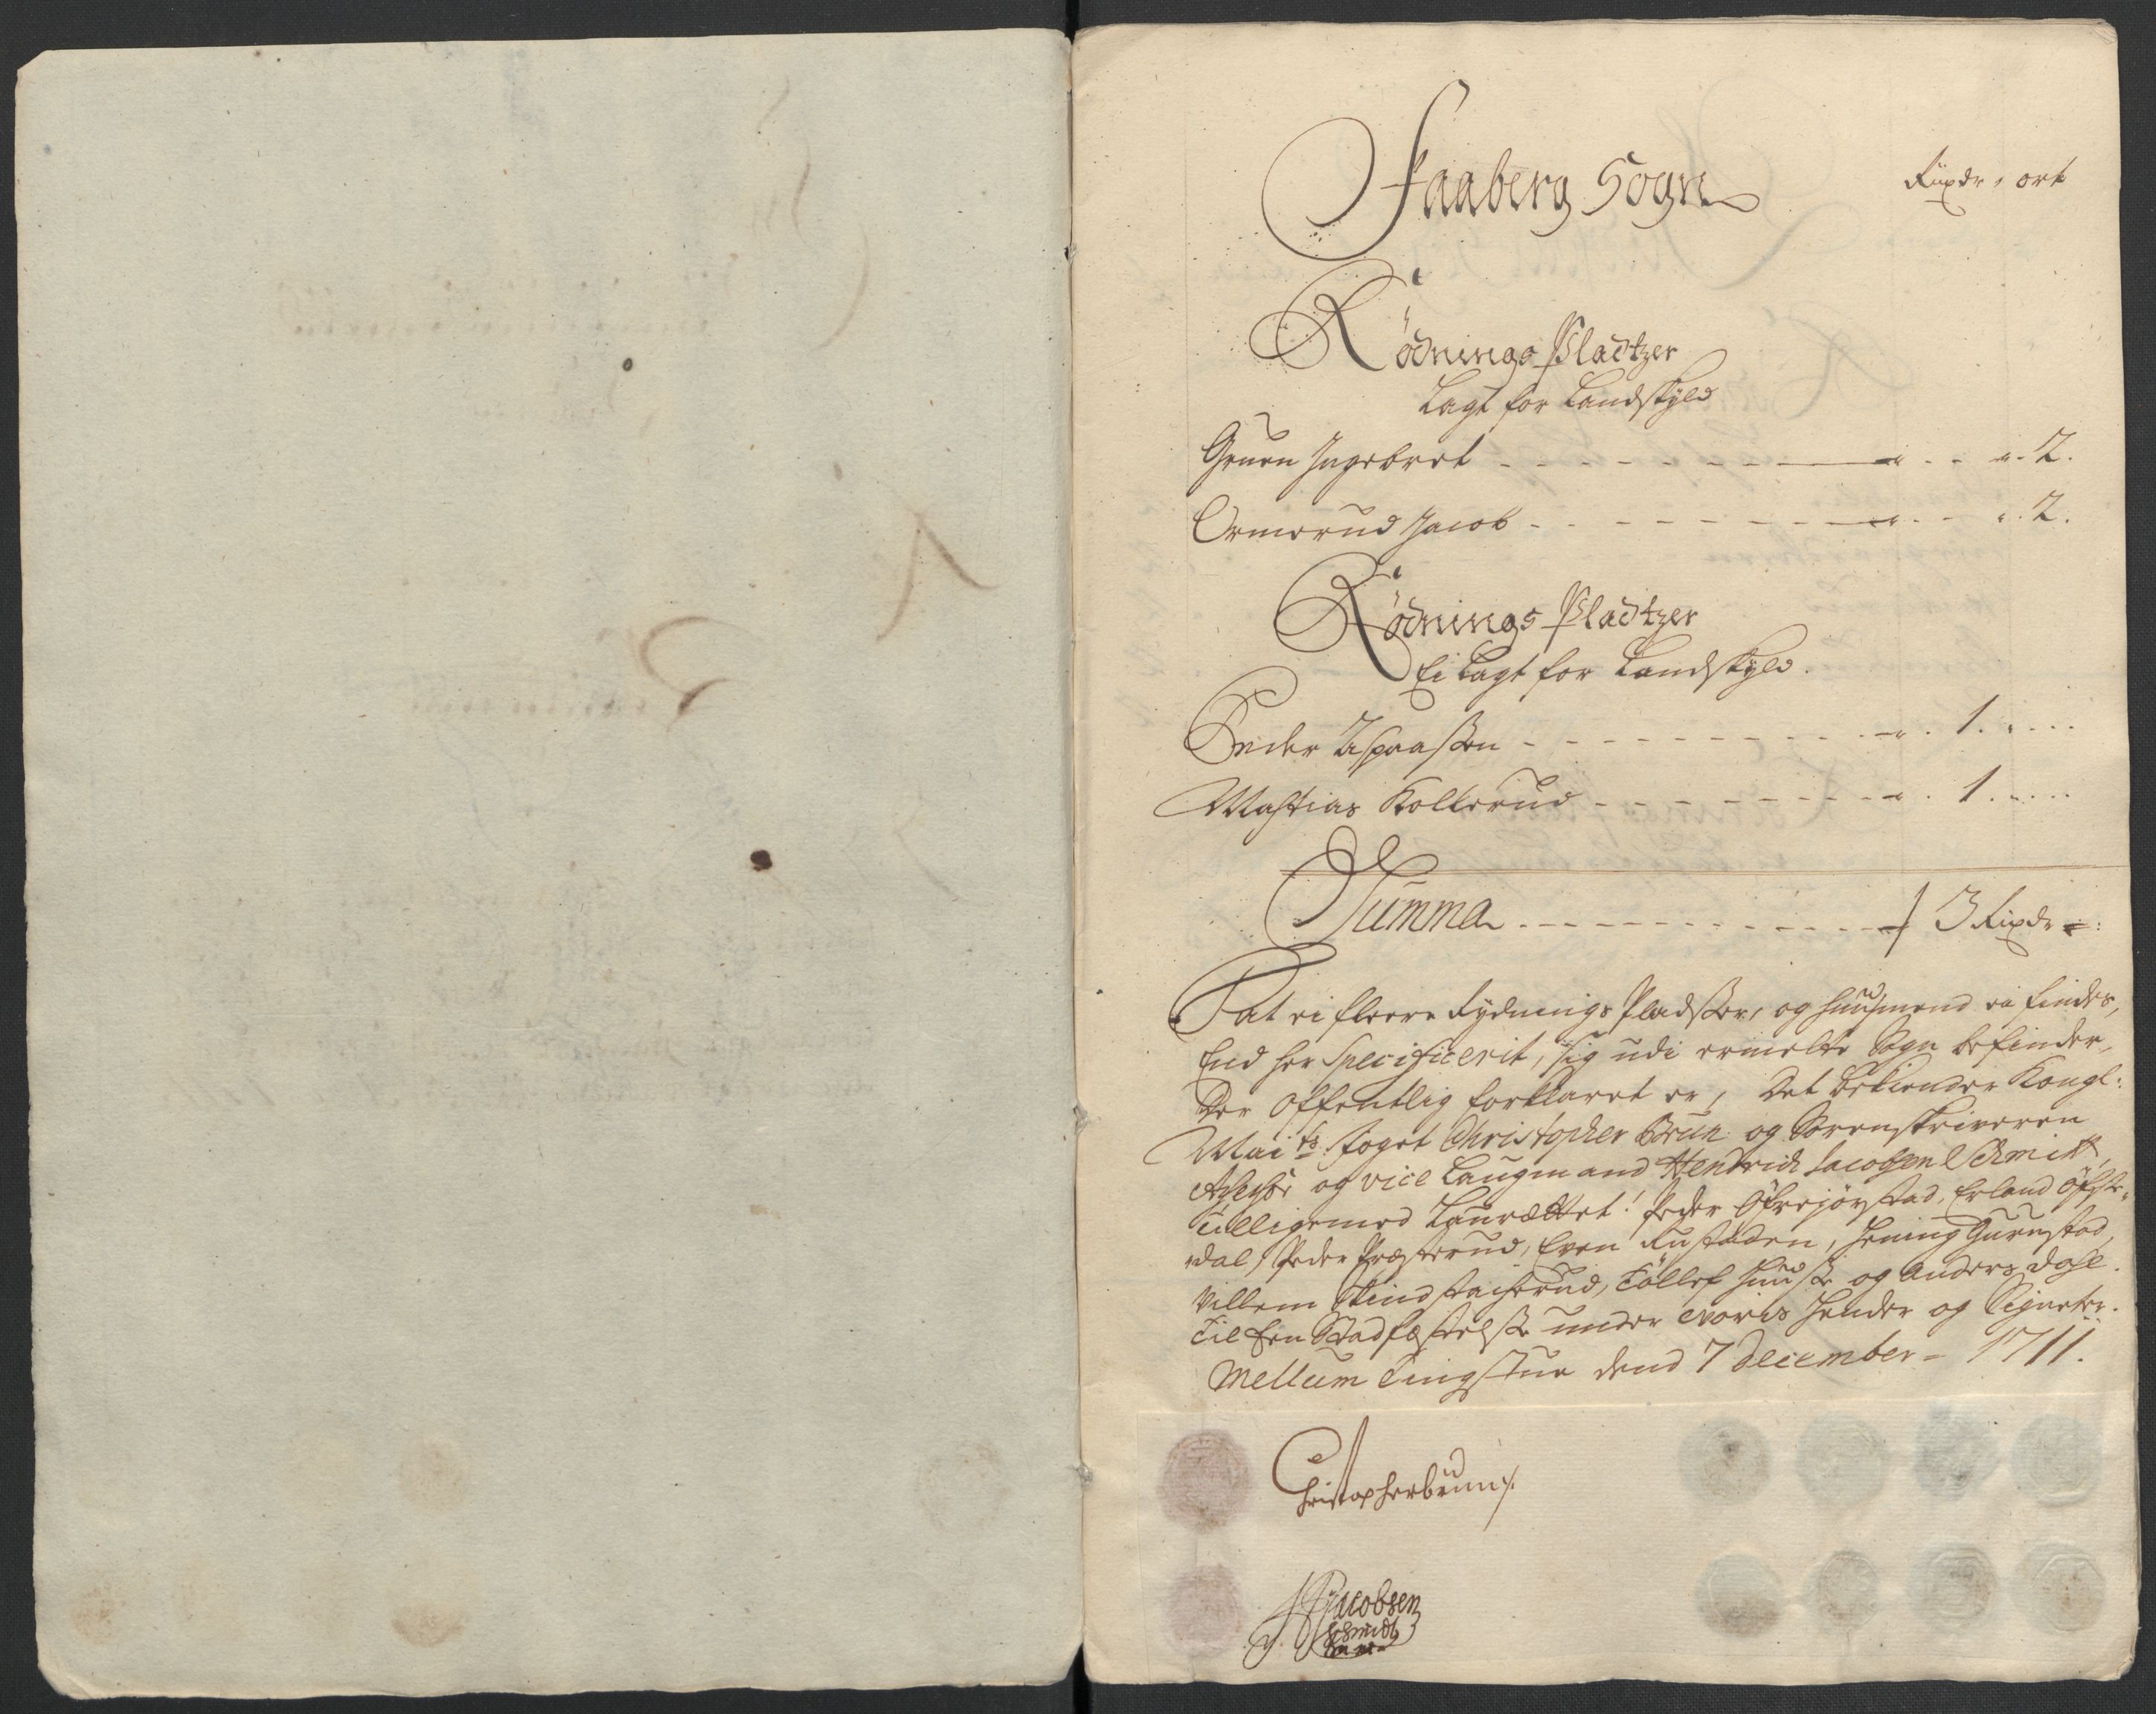 Faaberg Sogn
Rixdr. ort
Rödnings Pladtzer
Lagt for Landskyld
Gruen Ingebret - - - - 2.
Ormerud Jacob - - - - 2.
Rödnings Pladtzer
Ei Lagt for Landskyld.
Peder - - - - 1.
Mathias Kollerud - - - - 1.
Summa - - - - 3 Rixdr
At ei fleere Rydnings Pladtzer, og huusmend ei findes,
End her Specificerit, sig udi ermelte Sogn befinder,
Der offentlig forklaret er, Det bekiender Kongl:
Mai ts foget Christopher Brun og Sorenskriveren
Assessor og vice Laugmand Hendrich Jacobsen Schmidt,
tilligemed Laurættet! Peder Öfrejörstad, Erland Öfste-
dal, Peder Præsterud, Even Rustaden, Hening Gurustad,
Villem Skindstacherud, Tollef Huuse og Anders Dahl.
Til Een Stadfæstelse under voris Hender og Signeter.
Mellum Tingstue dend 7 December 1711.
Christopher brun
HJacobsen
Schmidt